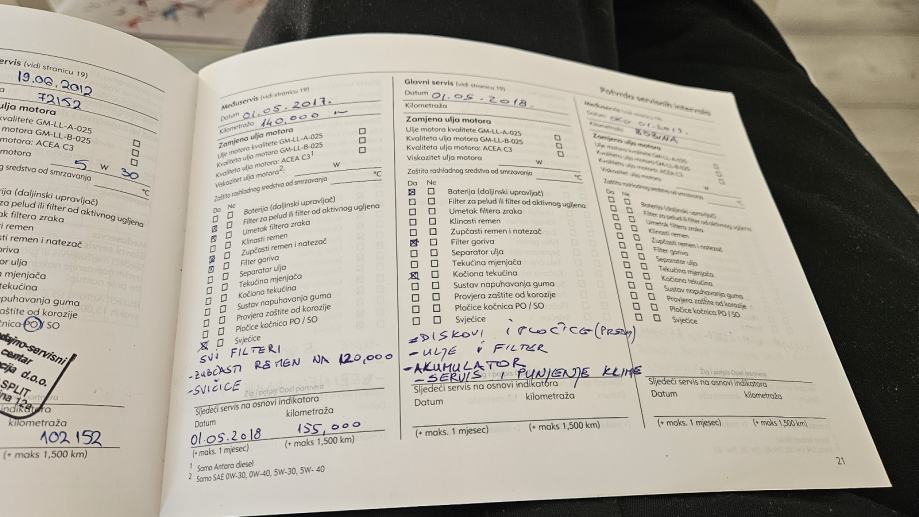 servis (vidi stranicu 19)
19.06.2012
72152
ulja motora
kvalitete GM-LL-A-025
kvalitete GM-LL-B-025
motora: ACEA C3
motora 5 W 30
g sredstva od smrzavanja °C
rija (daljinski upravljač)
za pelud ili filter od aktivnog ugljena
ak filtera zraka
ti remen
sti remen i natezač
goriva
or ulja
a mjenjača
tekućina
napuhavanja guma
aštite od korozije
čnica PO / SO
dajno-servisni
centar
cija d.o.o.
SPLIT
indikatora
kilometraža
102 152
(+ maks 1,500 km)
Međuservis (vidi stranicu 19)
Datum 01.05.2017.
Kilometraža 140,000
Zamjena ulja motora
Ulje motora kvalitete GM-LL-A-025
Kvaliteta ulja motora GM-LL-B-025
Kvaliteta ulja motora: ACEA C3¹
Viskozitet ulja motora²: W
Zaštita rashladnog sredstva od smrzavanja °C
Da Ne
Baterija (daljinski upravljač)
Filter za pelud ili filter od aktivnog ugljena
Umetak filtera zraka
Klinasti remen
Zupčasti remen i natezač
Filter goriva
Separator ulja
Tekućina mjenjača
Kočiona tekućina
Sustav napuhavanja guma
Provjera zaštite od korozije
Pločice kočnica PO / SO
Svjećice
SVI FILTERI
-ZUBČASTI REMEN NA 120,000
-SVIČICE
Žig i potpis Opel partnera
Sljedeći servis na osnovi indikatora
Datum kilometraža
01.05.2018 155,000
(+ maks. 1 mjesec) (+ maks 1,500 km)
1 Samo Antara diesel
2 Samo SAE 0W-30, 0W-40, 5W-30, 5W- 40
Glavni servis (vidi stranicu 19)
Datum 01.05.2018.
Kilometraža
Zamjena ulja motora
Ulje motora kvalitete GM-LL-A-025
Kvaliteta ulja motora GM-LL-B-025
Kvaliteta ulja motora: ACEA C3
Viskozitet ulja motora W
Zaštita rashladnog sredstva od smrzavanja °C
Da Ne
Baterija (daljinski upravljač)
Filter za pelud ili filter od aktivnog ugljena
Umetak filtera zraka
Klinasti remen
Zupčasti remen i natezač
Filter goriva
Separator ulja
Tekućina mjenjača
Kočiona tekućina
Sustav napuhavanja guma
Provjera zaštite od korozije
Pločice kočnica PO / SO
Svjećice
-DISKOVI I PLOČICE (PREDNJ
-ULJE i FILTER
-AKUMULATOR
-SERVIS PUNJENJE KLIME
Sljedeći servis na osnovi indikatora
Datum kilometraža
(+ maks. 1 mjesec) (+ maks 1,500 km)
Potvrda servisnih intervala
Međuservis (vidi stranicu 19)
Datum
Kilometraža
Zamjena ulja motora
Ulje motora kvalitete GM-LL-A-025
Kvaliteta ulja motora GM-LL-B-025
Kvaliteta ulja motora: ACEA C3
Viskozitet ulja motora: W
Zaštita rashladnog sredstva od smrzavanja °C
Da Ne
Baterija (daljinski upravljač)
Filter za pelud ili filter od aktivnog ugljena
Umetak filtera zraka
Klinasti remen
Zupčasti remen i natezač
Filter goriva
Separator ulja
Tekućina mjenjača
Kočiona tekućina
Sustav napuhavanja guma
Provjera zaštite od korozije
Pločice kočnica PO / SO
Svjećice
Žig i potpis Opel partnera
Sljedeći servis na osnovi indikatora
Datum kilometraža
(+ maks. 1 mjesec) (+ maks 1,500 km)
21